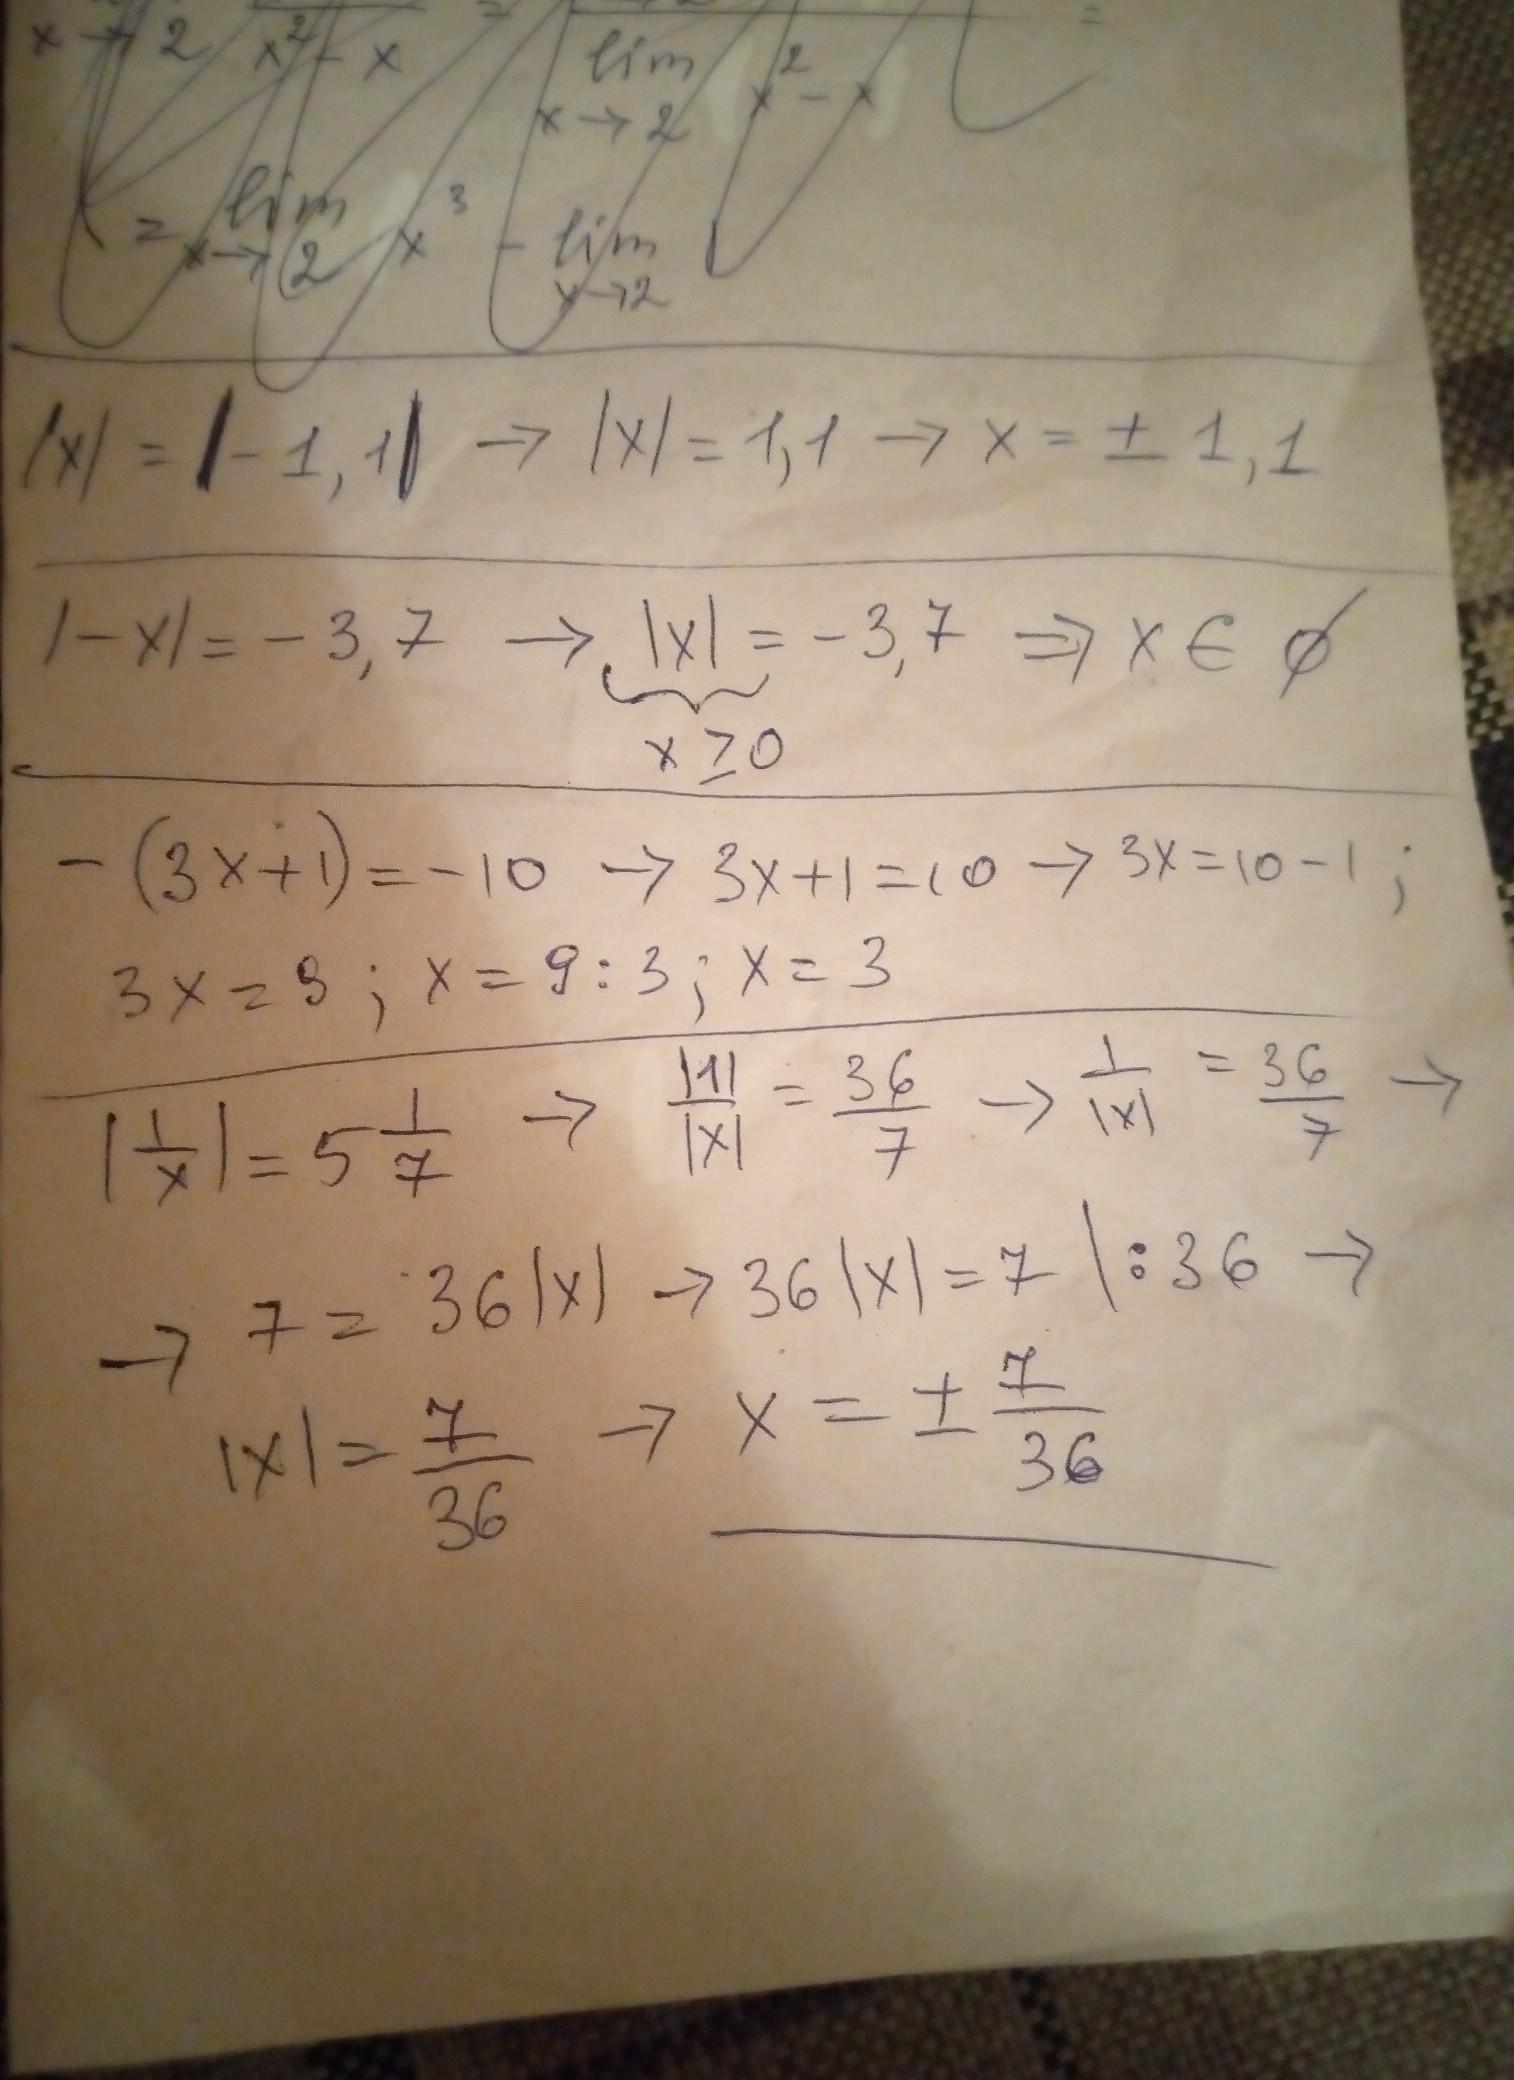 x → 2 x² - x = lim x → 2 x² - x =
= lim x → 2 x³ - lim x → 2
|x| = |-1,1| → |x| = 1,1 → x = ± 1,1
|-x| = -3,7 → |x| = -3,7 ⇒ x ∈ ∅
x ≥ 0
-(3x+1) = -10 → 3x+1 = 10 → 3x = 10-1 ;
3x = 9 ; x = 9:3 ; x = 3
|1/x| = 5 1/7 → |1|/|x| = 36/7 → 1/|x| = 36/7 →
→ 7 = 36|x| → 36|x| = 7 | :36 →
|x| = 7/36 → x = ± 7/36